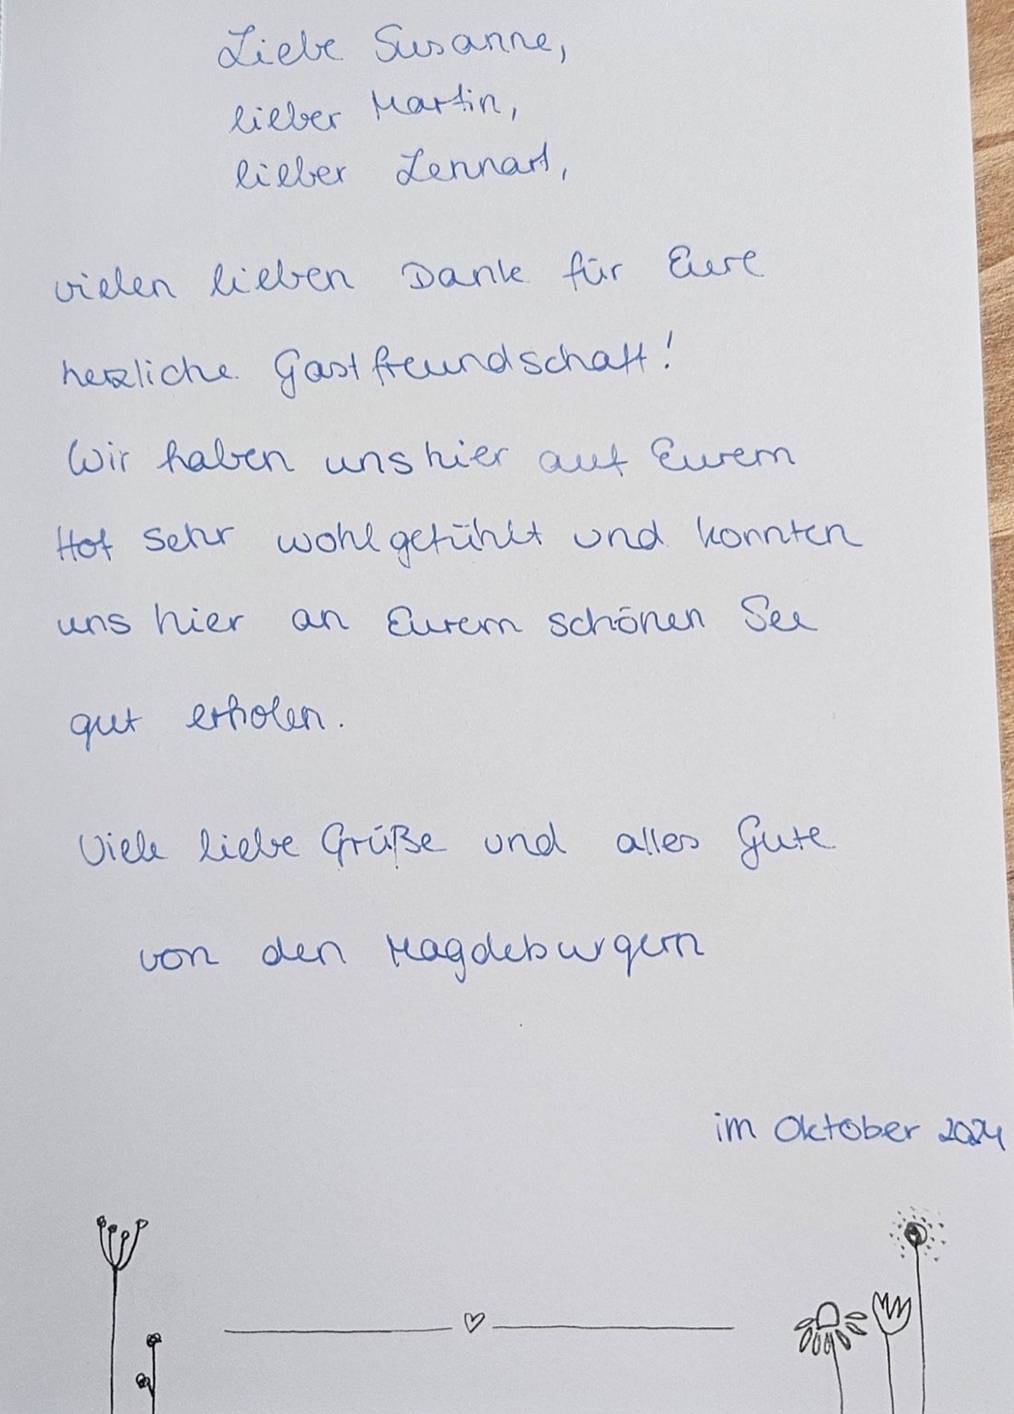 Liebe Susanne,
lieber Martin,
lieber Lennart,
vielen lieben Dank für Eure
herzliche Gastfreundschaft!
Wir haben uns hier auf Eurem
Hof sehr wohlgefühlt und konnten
uns hier an Eurem schönen See
gut erholen.
Viele liebe Grüße und alles Gute
von den Magdeburgern
im Oktober 2024